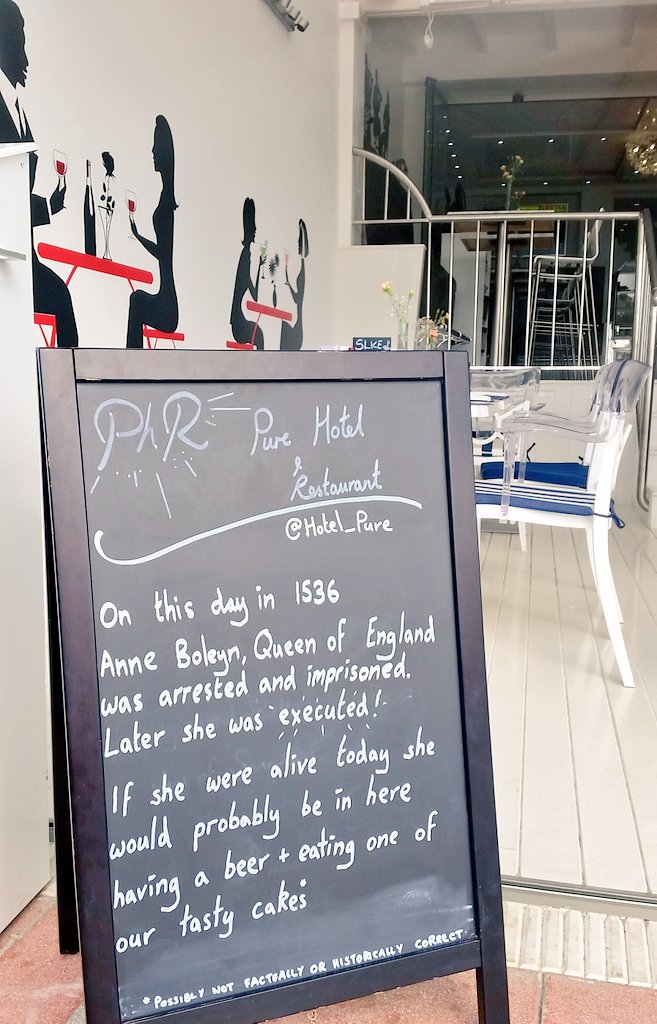 SLICE of
PhR Pure Hotel
& Restaurant
@Hotel_Pure
On this day in 1536
Anne Boleyn, Queen of England
was arrested and imprisoned.
Later she was executed!
If she were alive today she
would probably be in here
having a beer + eating one of
our tasty cakes*
*POSSIBLY NOT FACTUALLY OR HISTORICALLY CORRECT